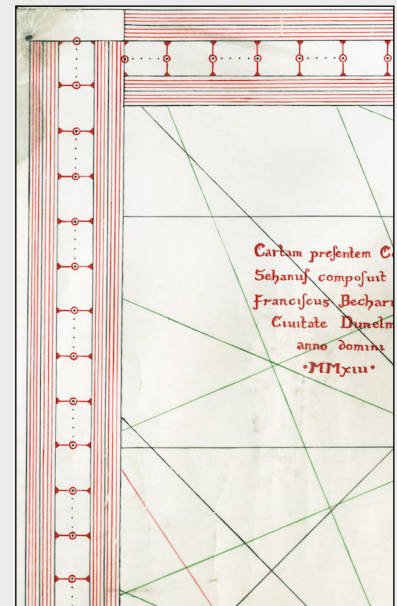 Cartam presentem C
Sehanus composuit
Franciscus Bechar
Ciuitate Dunelm
anno domini
•MMxiii•